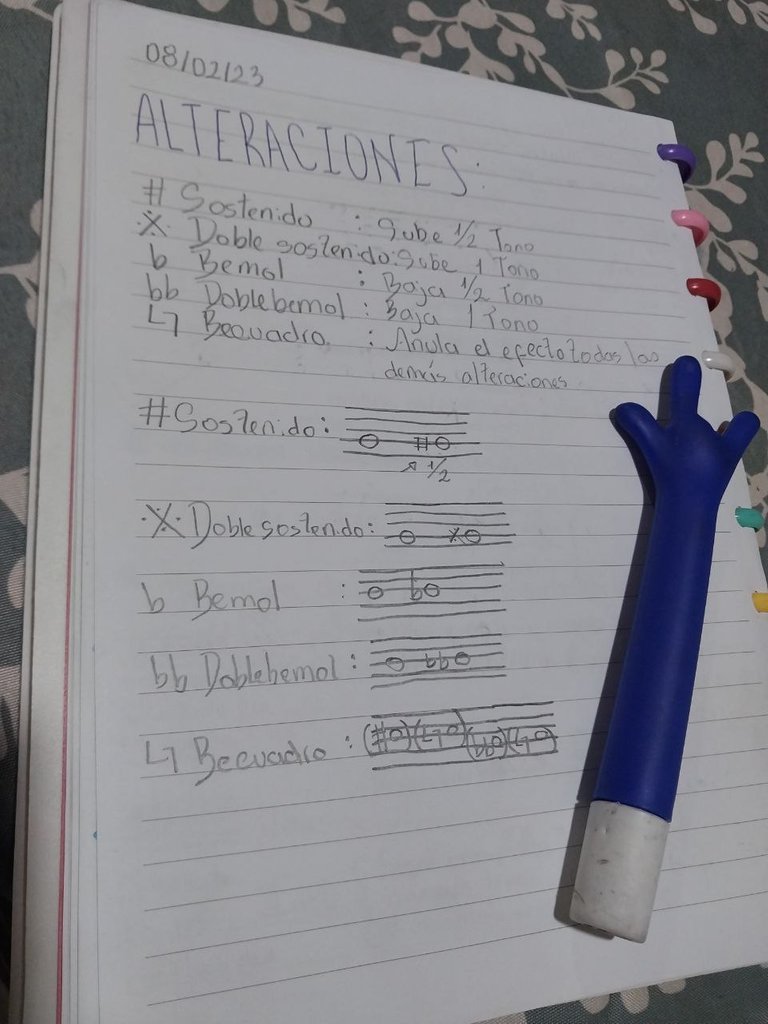 08/02/23
ALTERACIONES:
# Sostenido : Sube 1/2 Tono
·X· Doble sostenido: Sube 1 Tono
b Bemol : Baja 1/2 Tono
bb Doble bemol : Baja 1 Tono
♮ Becuadro : Anula el efecto todas las
demás alteraciones
# Sostenido:
# 1/2
·X· Doble sostenido:
x
b Bemol :
b
bb Doble bemol :
bb
♮ Becuadro :
(#) (♮) (bb) (♮)